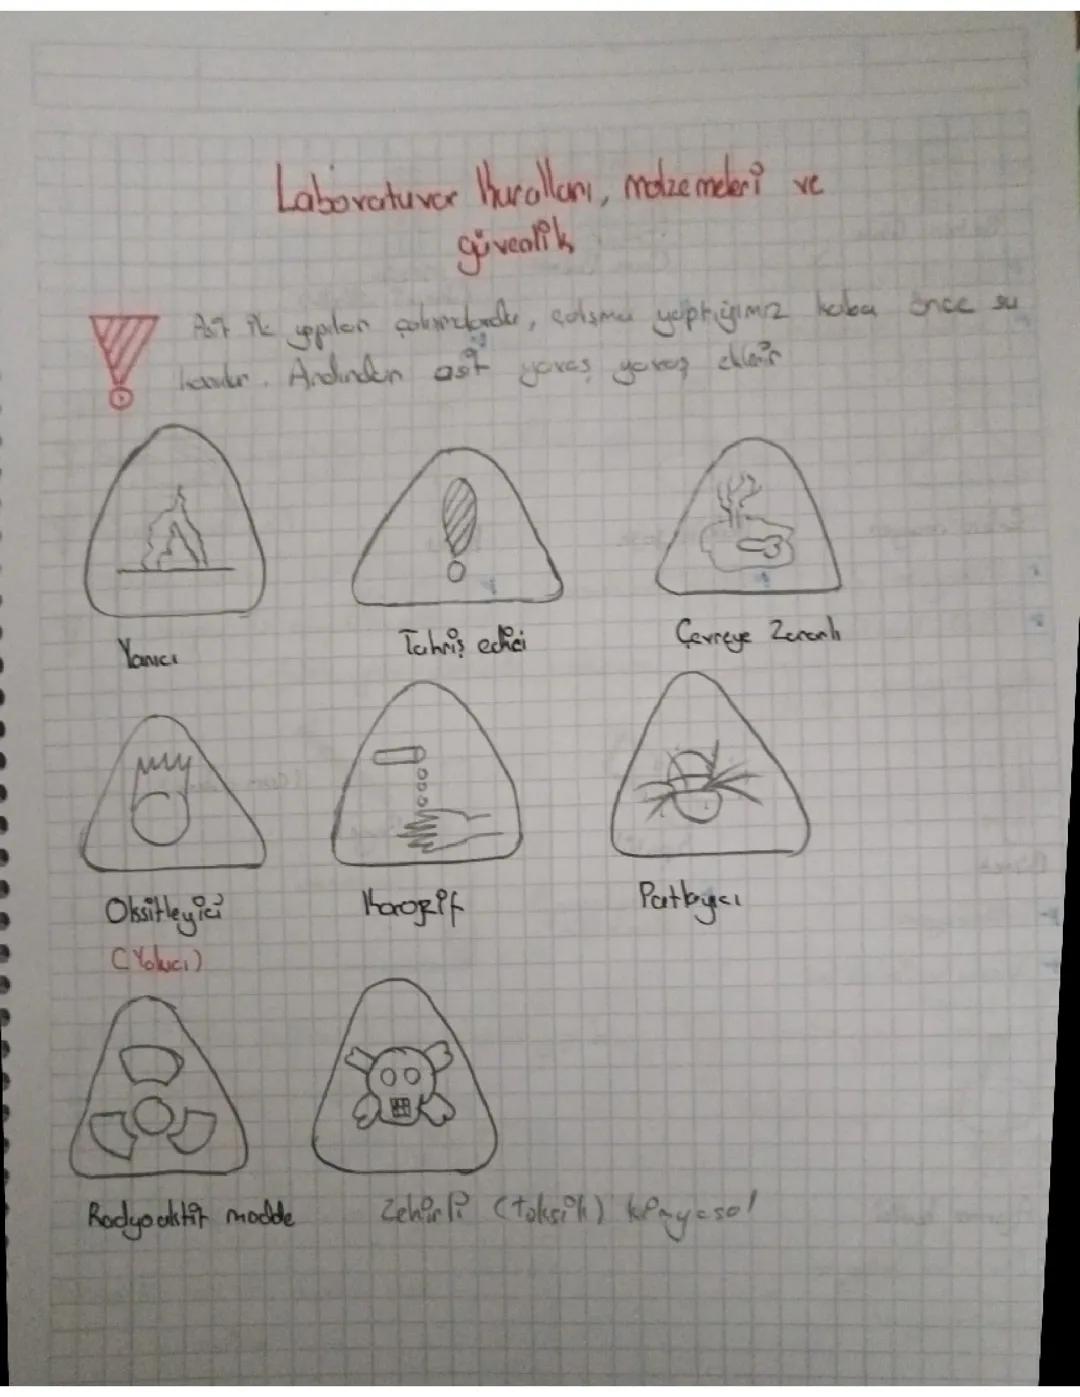 Laboratuvar Kuralları, malzemeleri ve
güvenlik
Asit ile yapılan çalışmalarda, çalışma yaptığımız kaba önce su
konulur. Ardından asit yavaş yavaş eklenir
Yanıcı
Tahriş edici
Çevreye Zararlı
Oksitleyici
(Yakıcı)
Korozif
Patlayıcı
Radyoaktif madde
Zehirli (toksik) kimyasal